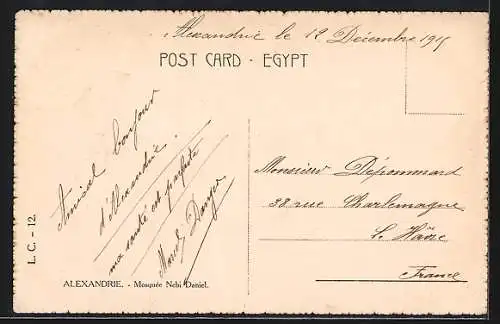 Alexandrie le 12 Décembre 1915
POST CARD · EGYPT
Amical bonjour
d'Alexandrie.
ma santé est parfaite
Marcel
Monsieur Dépommard
38 rue Charlemagne
Le Hâvre
France
L. C. - 12.
ALEXANDRIE. - Mosquée Nebi Daniel.